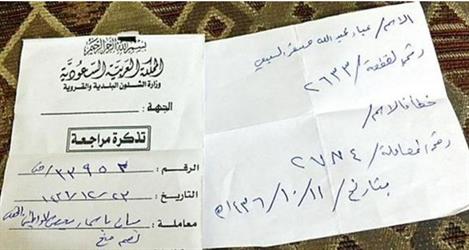 بسم الله الرحمن الرحيم
المملكة العربية السعودية
وزارة الشئون البلدية والقروية
الجهة:
تذكرة مراجعة
الرقم: ٣٣٩٥٣/
التاريخ: ١٤٣٦/١٢/٢٣
معاملة:
منح
الاسم/ عبدالله مسفر السبيعي
رقم القطعة/ ٢٦٣٣
خطأ فالاسم/
رقم المعاملة/ ٢٧٨٤
بتاريخ/ ١٤٣٦/١٠/١١هـ